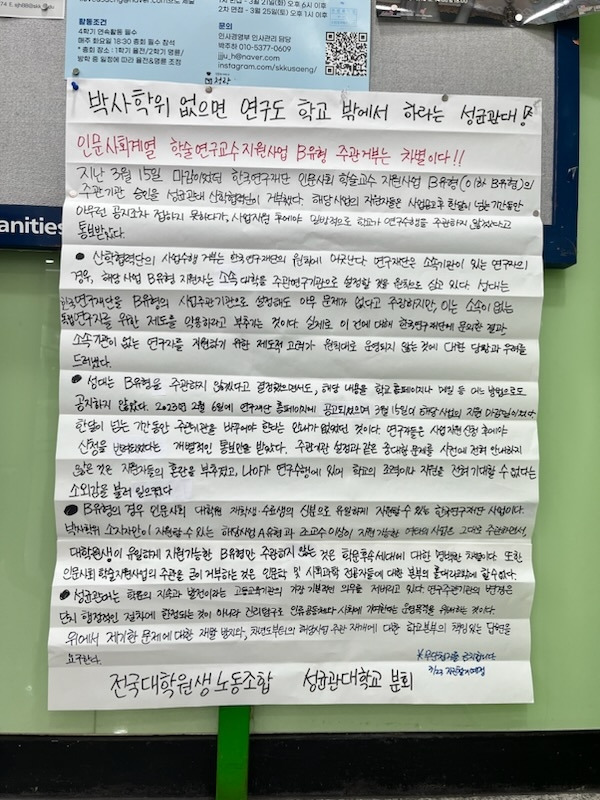 74 E. sjh88@skk
1차 면접 - 3월 21일(화) 오후 6시 이후
2차 면접 - 3월 25일(토) 오후 1시 이후
활동조건
4학기 연속활동 필수
매주 화요일 18:30 총회 필수 참석
* 총회 장소 : 1학기 율전/2학기 명륜/
방학 중 일정에 따라 율전&명륜 조정
문의
인사경영부 인사관리 담당
박주하 010-5377-0609
jjju_h@naver.com
instagram.com/skkusaeng/
성관
anities
박사학위 없으면 연구도 학교 밖에서 하라는 성균관대!
인문사회계열 학술연구교수 지원사업 B유형 주관거부는 차별이다!!
지난 3월 15일 마감이었던 한국연구재단 인문사회 학술교수 지원사업 B유형(이하 B유형)의
주관기관 승인을 성균관대 산학협력단이 거부했다. 해당사업의 지원자들은 사업공고 후 한달이 넘는 기간동안
아무런 공지조차 접하지 못하다가, 사업지원 후에야 일방적으로 학교가 연구수행을 주관하지 않겠다고
통보받았다.
● 산학협력단의 사업수행 거부는 한국연구재단의 원칙에 어긋난다. 연구재단은 소속기관이 있는 연구자의
경우, 해당 사업 B유형 지원자는 소속 대학을 주관연구기관으로 설정할 것을 원칙으로 삼고 있다. 성대는
한국연구재단을 B유형의 사업주관기관으로 설정해도 아무 문제가 없다고 주장하지만, 이는 소속이 없는
독립연구자를 위한 제도를 악용하라고 부추기는 것이다. 실제로 이 건에 대해 한국연구재단에 문의한 결과
소속기관이 없는 연구자를 지원하기 위한 제도적 고려가 원칙대로 운영되지 않는 것에 대한 당황과 우려를
드러냈다.
● 성대는 B유형을 주관하지 않겠다고 결정했으면서도, 해당 내용을 학교 홈페이지나 메일 등 어느 방법으로도
공지하지 않았다. 2023년 2월 6일에 연구재단 홈페이지에 공고되었으며 3월 15일이 해당 사업의 지원 마감일이었다.
한달이 넘는 기간동안 주관기관을 바꾸어야 한다는 안내가 없었던 것이다. 연구자들은 사업 지원 신청 후에야
신청을 반려되었다는 개별적인 통보만을 받았다. 주관기관 설정과 같은 중대한 문제를 사전에 전혀 안내하지
않은 것은 지원자들의 혼란을 부추겼고, 나아가 연구수행에 있어 학교의 조력이나 지원을 전혀 기대할 수 없다는
소외감을 불러 일으켰다
● B유형의 경우 인문사회 대학원 재학생·수료생의 신분으로 유일하게 지원할 수 있는 한국연구재단 사업이다.
박사학위 소지자만이 지원할 수 있는 해당사업 A유형과 조교수 이상이 지원 가능한 여타의 사업은 그대로 주관하면서,
대학원생이 유일하게 지원가능한 B유형만 주관하지 않는 것은 학문후속세대에 대한 명백한 차별이다. 또한
인문사회 학술지원사업의 주관을 굳이 거부하는 것은 인문학 및 사회과학 전공자들에 대한 본부의 홀대라고밖에 할 수 없다.
● 성균관대는 학문의 지속과 발전이라는 고등교육기관의 가장 기본적인 의무를 저버리고 있다. 연구주관기관의 변경은
단지 행정적인 절차에 한정되는 것이 아니라 진리탐구로 인류공동체와 사회에 기여한다는 운영목적을 위배하는 것이다.
위에서 제기한 문제에 대한 재발 방지와, 차년도부터의 해당사업 주관 재개에 대한 학교본부의 책임있는 답변을
요구한다.
※무단철거를 금지합니다
자진철거예정
전국대학원생노동조합 성균관대학교 분회